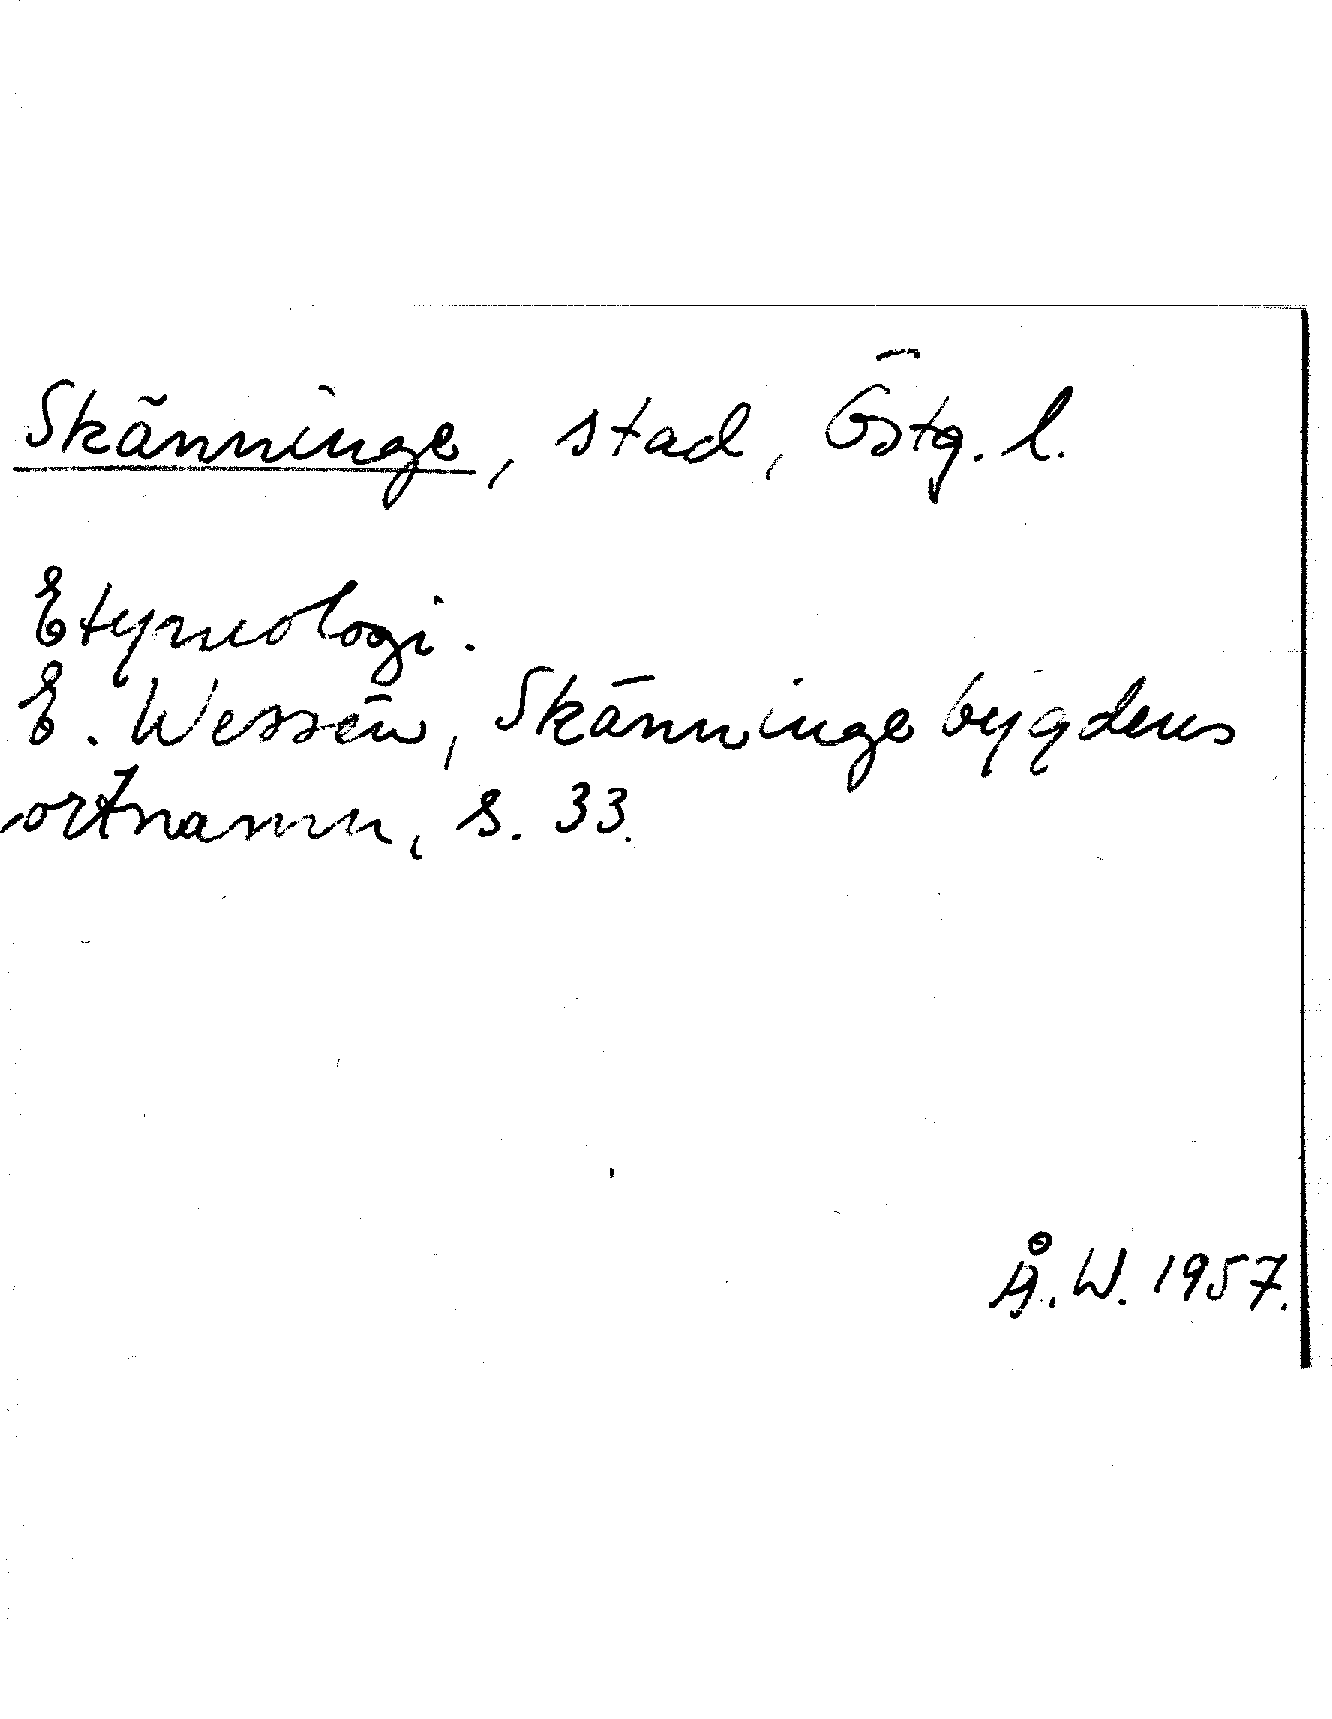 Skänninge, stad, Östg. l.
Etymologi.
E. Wessén, Skänningebygdens
ortnamn, s. 33.
Å. W. 1957.